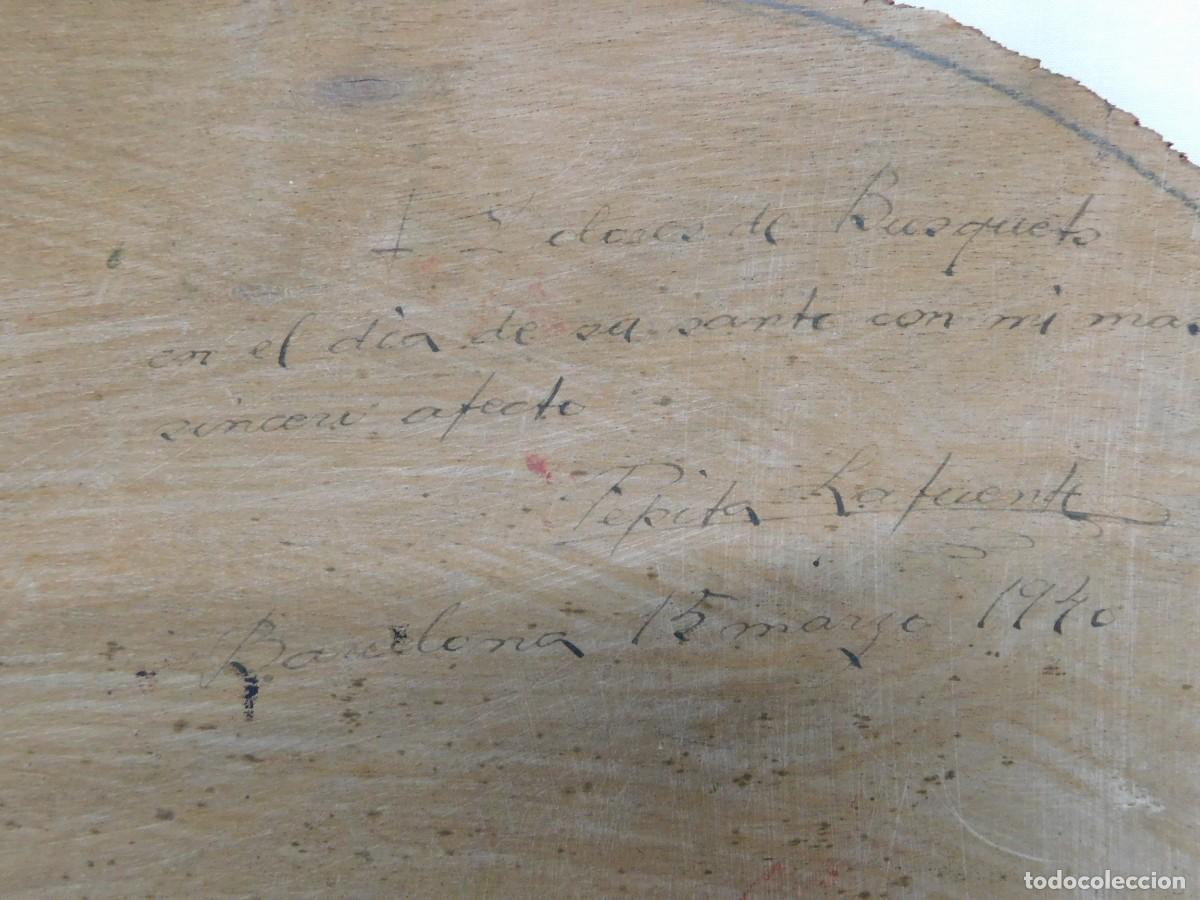 dolores de Busquets
en el día de su santo con mi mas
sincero afecto
Pepita Lafuente
Barcelona 15 marzo 1940
todocoleccion